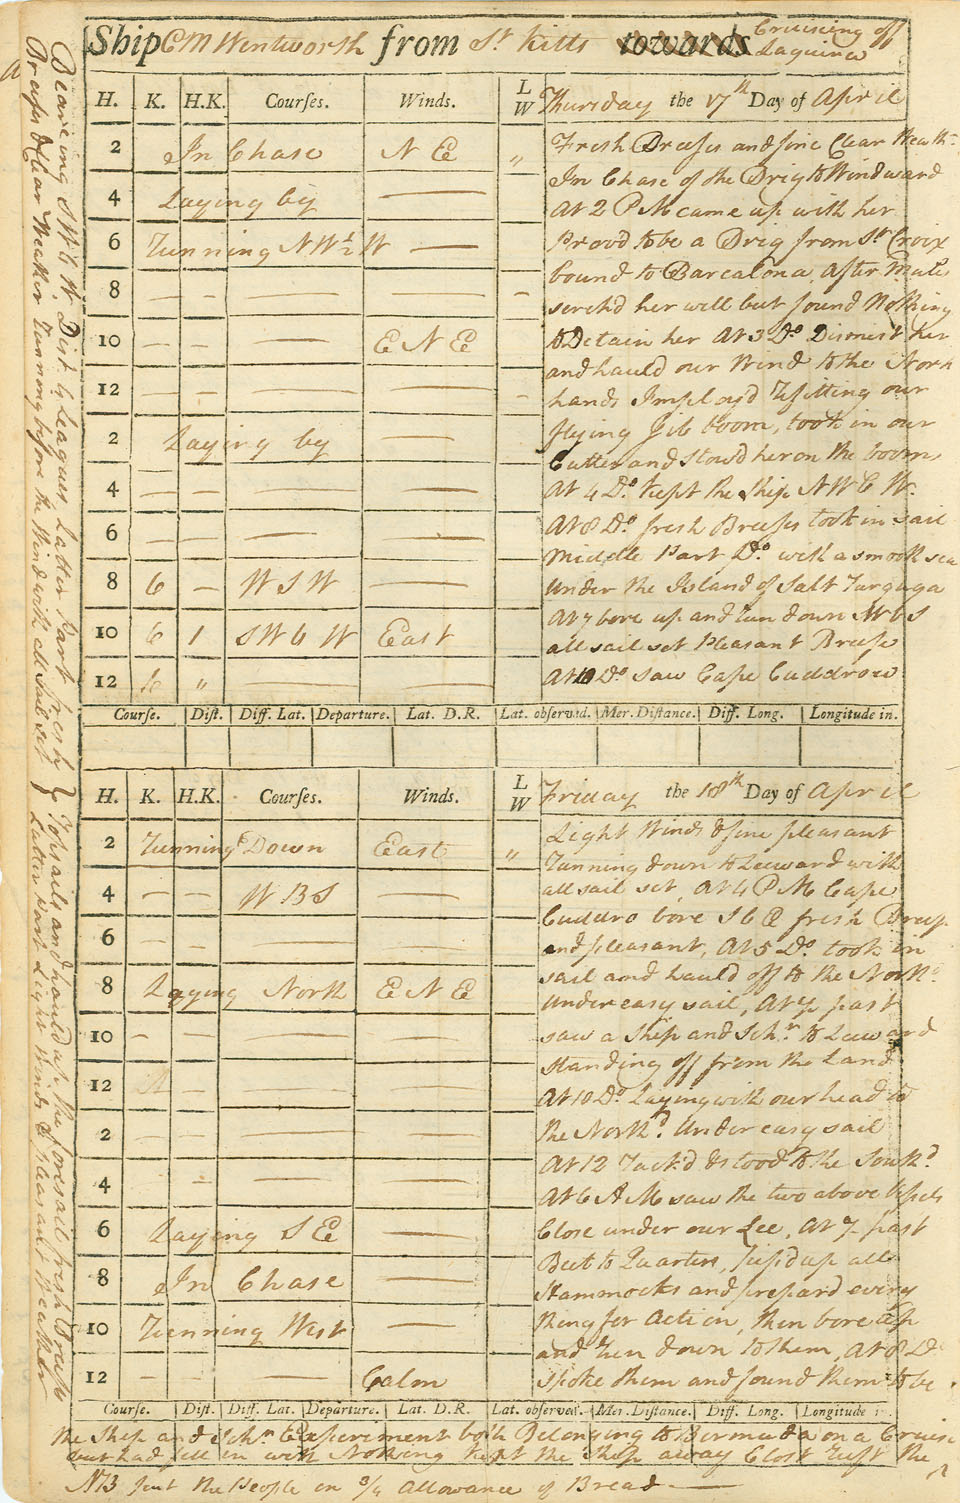 Ship CM Wentworth from St Kitts towards Cruising off
Laguira
H. K. H.K. Courses. Winds. L W Thursday the 17th Day of April
2 In Chase N E "
4 Laying by
6 Running N W ½ W
8
10 E N E
12
2 Laying by
4
6
8 6 W S W
10 6 1 S W b W East
12 6 "
Fresh Breeses and fine Clear Weath
In Chase of the Brig to Windward
At 2 P M came up with her
Prov'd to be a Brig from St Croix
bound to Barcalona After
serch'd her well but found Nothing
to Detain her At 3 Do Dismist her
and hauld our Wind to the North
hands Imploy'd Refitting our
flying Jib boom, took in our
Cutter and stow'd her on the booms
At 4 Do kept the Ship N W b W.
At 8 Do fresh Breeses took in sail
Middle Part Do with a smooth sea
Under the Island of Salt Turguga
At 7 bore up and run down W b S
all sail set Pleasant Breese
At 10 Do saw Cape Cuddrow
Course. Dist. Diff. Lat. Departure. Lat. D.R. Lat. observed. Mer. Distance. Diff. Long. Longitude in.
H. K. H.K. Courses. Winds. L W Friday the 18th Day of April
2 Running Down East "
4 W B S
6
8 Laying North E N E
10
12
2
4
6 Laying S E
8 In Chase
10 Running West
12 Calm
Light Winds & fine pleasant
Running down to Leeward with
all sail set, At 4 P M Cape
Cuddro bore S b E fresh Breese
and pleasant, At 5 Do took in
sail and hauld off to the North
Under easy sail, At ½ past
saw a Ship and Schn to Leeward
standing off from the Land
At 10 Do Laying with our head to
the Northd. Under easy sail
At 12 Tack'd & stood to the Southd
At 6 A M saw the two above Vessels
Close under our Lee, At ½ past
Beet to Quarters, up all
Hammocks and prepard every
thing for Action, then bore up
and run down to them, At 8 Do
spoke them and found them to be
Course. Dist. Diff. Lat. Departure. Lat. D.R. Lat. observed. Mer. Distance. Diff. Long. Longitude
the Ship and Schn Experiment both Belonging to Bermuda on a Cruise
but had fell in with Nothing kept the Ship away Clost Reeft the
NB put the People on ¾ Allowance of Bread
Beareing S W b W, Dist 19 Leagues, Latter Part fresh
Breeses & Clear Weather Running before the Wind with all sail set
Topsails and hauld up the foresail fresh Breese
Latter Part Light Winds & pleasant Weather